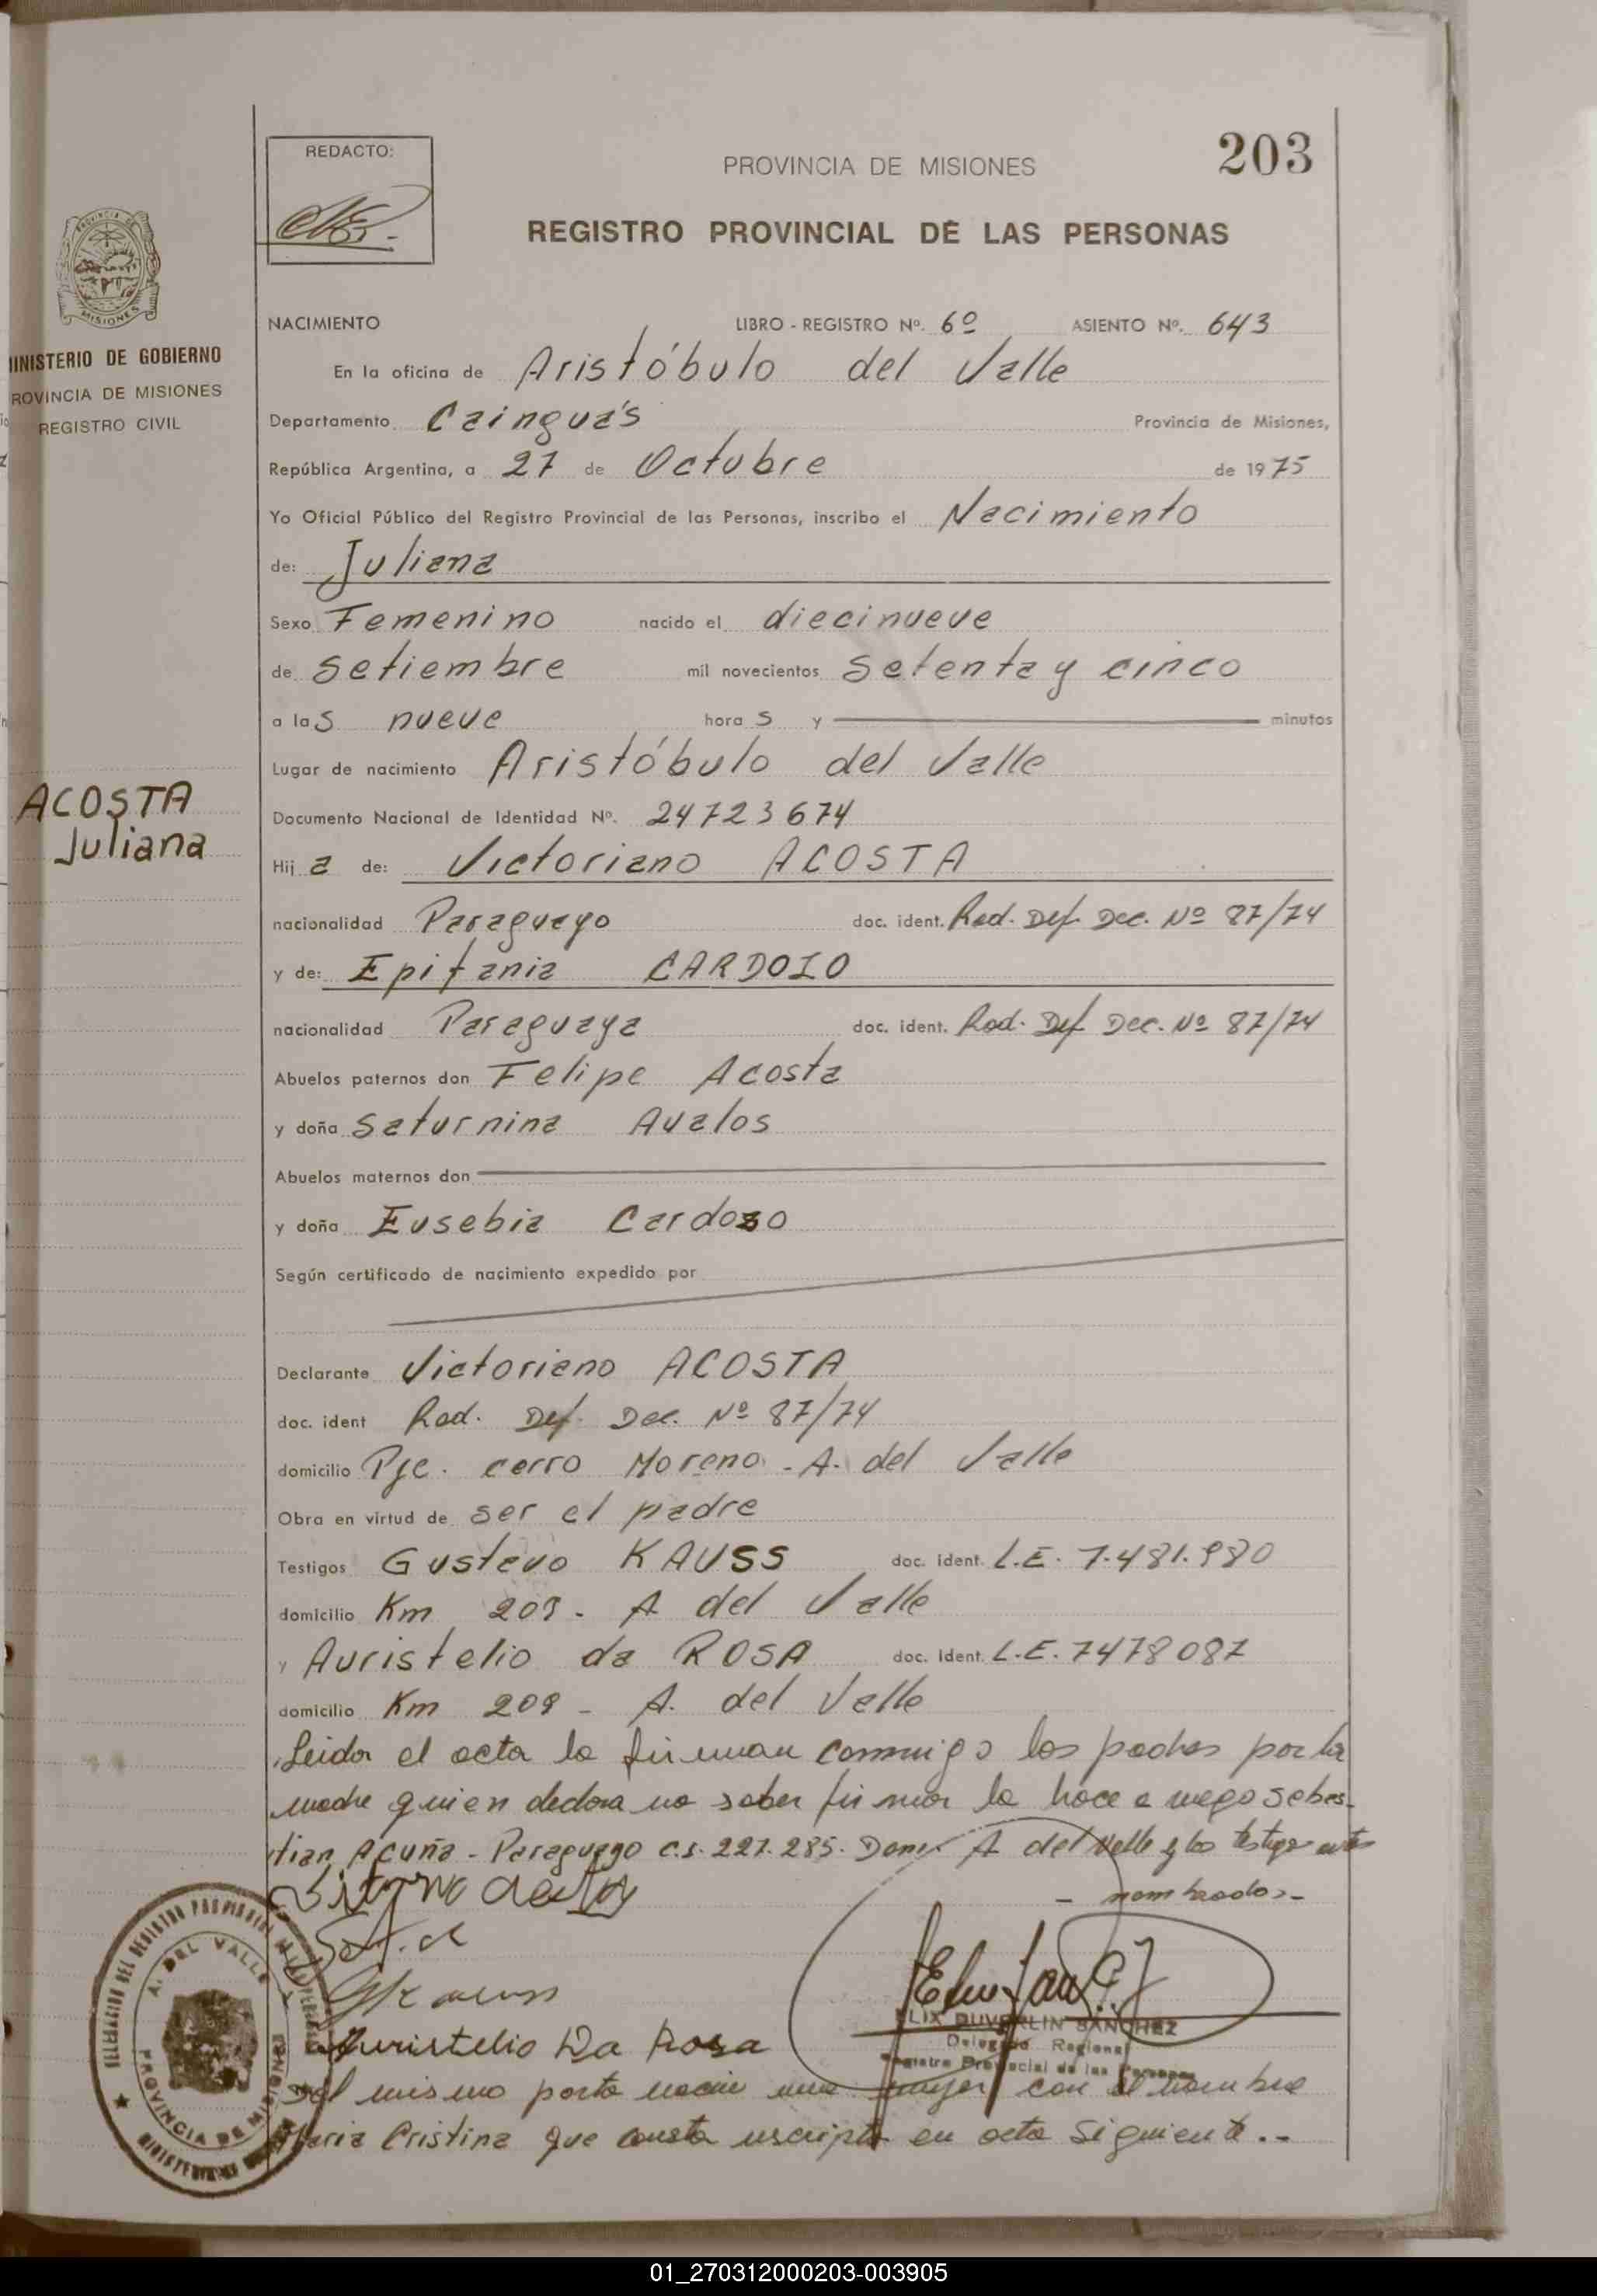 203
REDACTO:
PROVINCIA DE MISIONES
REGISTRO PROVINCIAL DE LAS PERSONAS
MISIONES
MINISTERIO DE GOBIERNO
PROVINCIA DE MISIONES
REGISTRO CIVIL
NACIMIENTO LIBRO - REGISTRO Nº. 6º ASIENTO Nº. 643
En la oficina de Aristóbulo del Valle
Departamento Cainguás Provincia de Misiones,
República Argentina, a 27 de Octubre de 1975
Yo Oficial Público del Registro Provincial de las Personas, inscribo el Nacimiento
de: Juliana
Sexo Femenino nacido el diecinueve
de Setiembre mil novecientos setenta y cinco
a las nueve horas y minutos
Lugar de nacimiento Aristóbulo del Valle
ACOSTA
Juliana
Documento Nacional de Identidad Nº. 24723674
Hija de: Victoriano ACOSTA
nacionalidad Paraguayo doc. ident. Rad. Def. Dec. Nº 87/74
y de: Epifania CARDOZO
nacionalidad Paraguaya doc. ident. Rad. Def Dec. Nº 87/74
Abuelos paternos don Felipe Acosta
y doña Saturnina Avalos
Abuelos maternos don
y doña Eusebia Cardozo
Según certificado de nacimiento expedido por
Declarante Victoriano ACOSTA
doc. ident Rad. Def. Dec. Nº 87/74
domicilio Pje. cerro Moreno - A. del Valle
Obra en virtud de ser el padre
Testigos Gustavo KAUSS doc. ident. L.E. 7.481.980
domicilio Km 209 - A del Valle
y Auristelio da ROSA doc. Ident. L.E. 7478087
domicilio Km 209 - A. del Valle
Leida el acta la firman conmigo los padres por la
madre quien declara no saber firmar lo hace a ruego Sebas-
tian Acuña - Paraguayo C.I. 227.285. Dom. A del Valle y los testigos antes
- nombrados -
Auristelio Da Rosa
DUVERLIN SANCHEZ
Delegado Regional
Registro Provincial de las Personas
DELEGACION DEL REGISTRO PROVINCIAL
A. DEL VALLE
PROVINCIA DE MISIONES
Del mismo parto nacio una mujer con el nombre
Maria Cristina que consta inscripta en acta siguiente.-
01_270312000203-003905